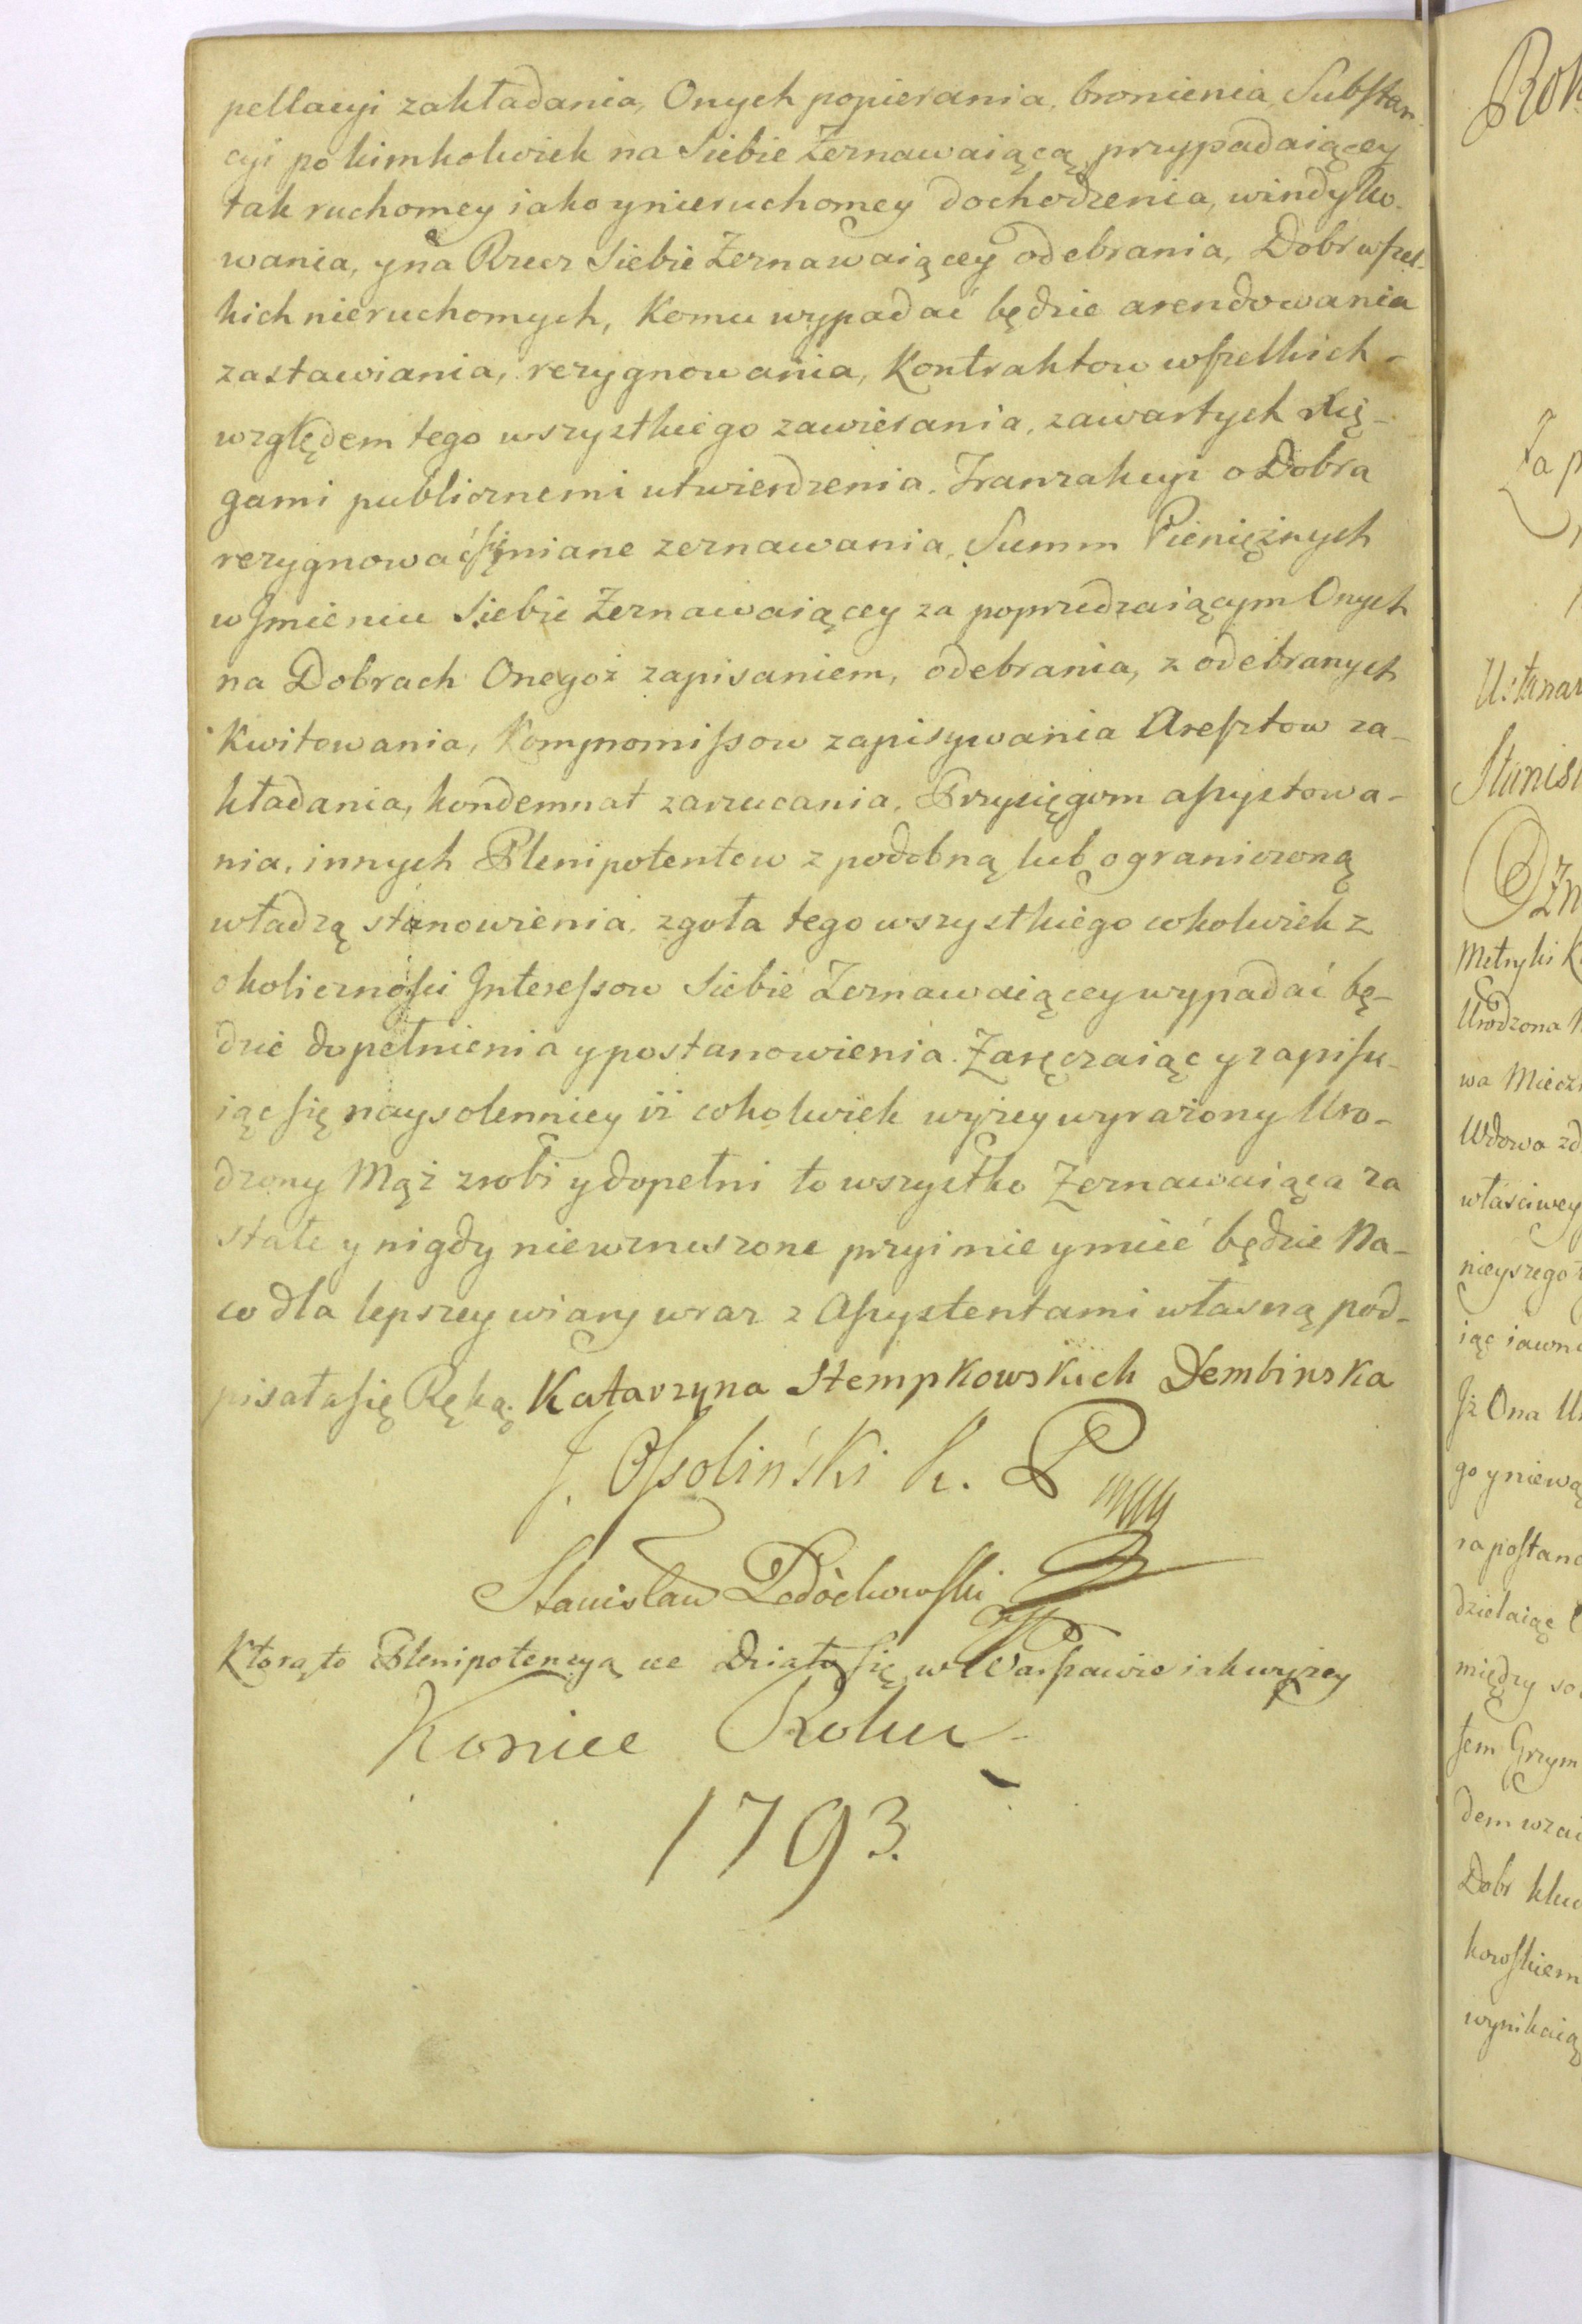 pellacyi zakładania, Onych popierania, bronienia, Substan-
cyi po kimkolwiek na Siebie Zeznawaiącą przypadaiącey
tak ruchomey iako y nieruchomey dochodzenia, windyko-
wania, y na Rzecz Siebie Zeznawaiącey odebrania, Dobr wszel-
kich nieruchomych, komu wypadać będzie arendowania
zastawiania, rezygnowania, Kontraktow wszelkich
względem tego wszystkiego zawierania, zawartych Xię-
gami publicznemi utwierdzenia. Tranzakcyi o Dobra
rezygnować się miane zeznawania, Summ Pieniężnych
w Jmieniu Siebie Zeznawaiącey za poprzedzaiącym Onych
na Dobrach Onegoż zapisaniem, odebrania, z odebranych
kwitowania, Kompromissow zapisywania Aresztow za-
kładania, kondemnat zarzucania, Przysięgom assystowa-
nia, innych Plenipotentow z podobną lub ograniczoną
władzą stanowienia, zgoła tego wszystkiego cokolwiek z
okoliczności Jnteressow Siebie Zeznawaiącey wypadać bę-
dzie dopełnienia y postanowienia. Zaręczaiąc y zapisu-
iąc się naysolenniey iż cokolwiek wyżey wyrażony Uro-
dzony Mąż zrobi y dopełni to wszystko Zeznawaiąca za
stałe y nigdy niewzruszone przyimie y mieć będzie Na-
co dla lepszey wiary wraz z Assystentami własną pod-
pisała się Ręką. Katarzyna Stempkowskich Dembinska
J. Ossoliński k. P
Stanisław Ledòchowski
Ktorą to Plenipotencyą ... Działo się w Warszawie iak wyżey
Koniec Roku
1793.
Rok
Za p
Ustanaw
Stanisł
Metryki K
Urodzona
wa Mieczn
Wdowa zd
właściwey
nieyszego
iąc iawn
Jż Ona U
go y niewą
za postano
dzielaiąc
między so
sem Grzym
dem wzai
Dobr kluc
kowskiem
wynikaią